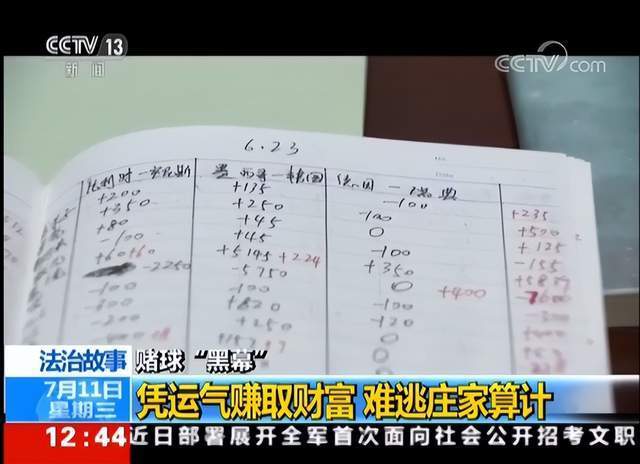 CCTV 13
新闻
CCTV.com
6.23
比利时一突尼斯 墨西哥一韩国 德国一瑞典
+200 +135 -100 +235
+350 +250 -100 +500
+80 +45 0 +125
-100 +45 -100 -155
+60+60 +5145 +224 +350
-2250 -5750 0
-100 -100 +400
-300 +820 -100
-200 +250 -120
法治故事
赌球“黑幕”
7月11日
星期三
凭运气赚取财富 难逃庄家算计
12:44
近日部署展开全军首次面向社会公开招考文职